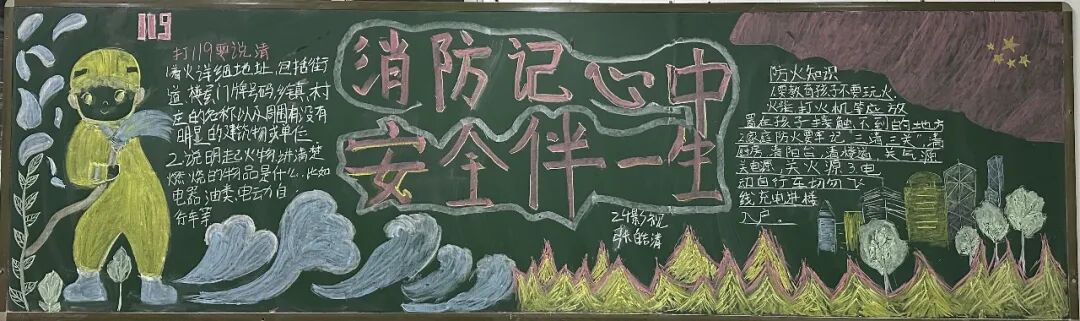 119
打119要说清
1.着火详细地址,包括街
道楼房门牌号码,乡镇、村
庄的名称以及周围有没有
明显的建筑物或单位
2.说明起火物,讲清楚
燃烧的物品是什么,比如
电器油类电动自
行车等
消防记心中
安全伴一生
24影视
张皓清
防火知识
1.要教育孩子不要玩火,
火柴打火机等应放
置在孩子接触不到的地方
2.家庭防火要牢记三清三关,清
厨房,清阳台,清楼道,关气源
关电源,关火源3.电
动自行车切勿飞
线充电进楼
入户.